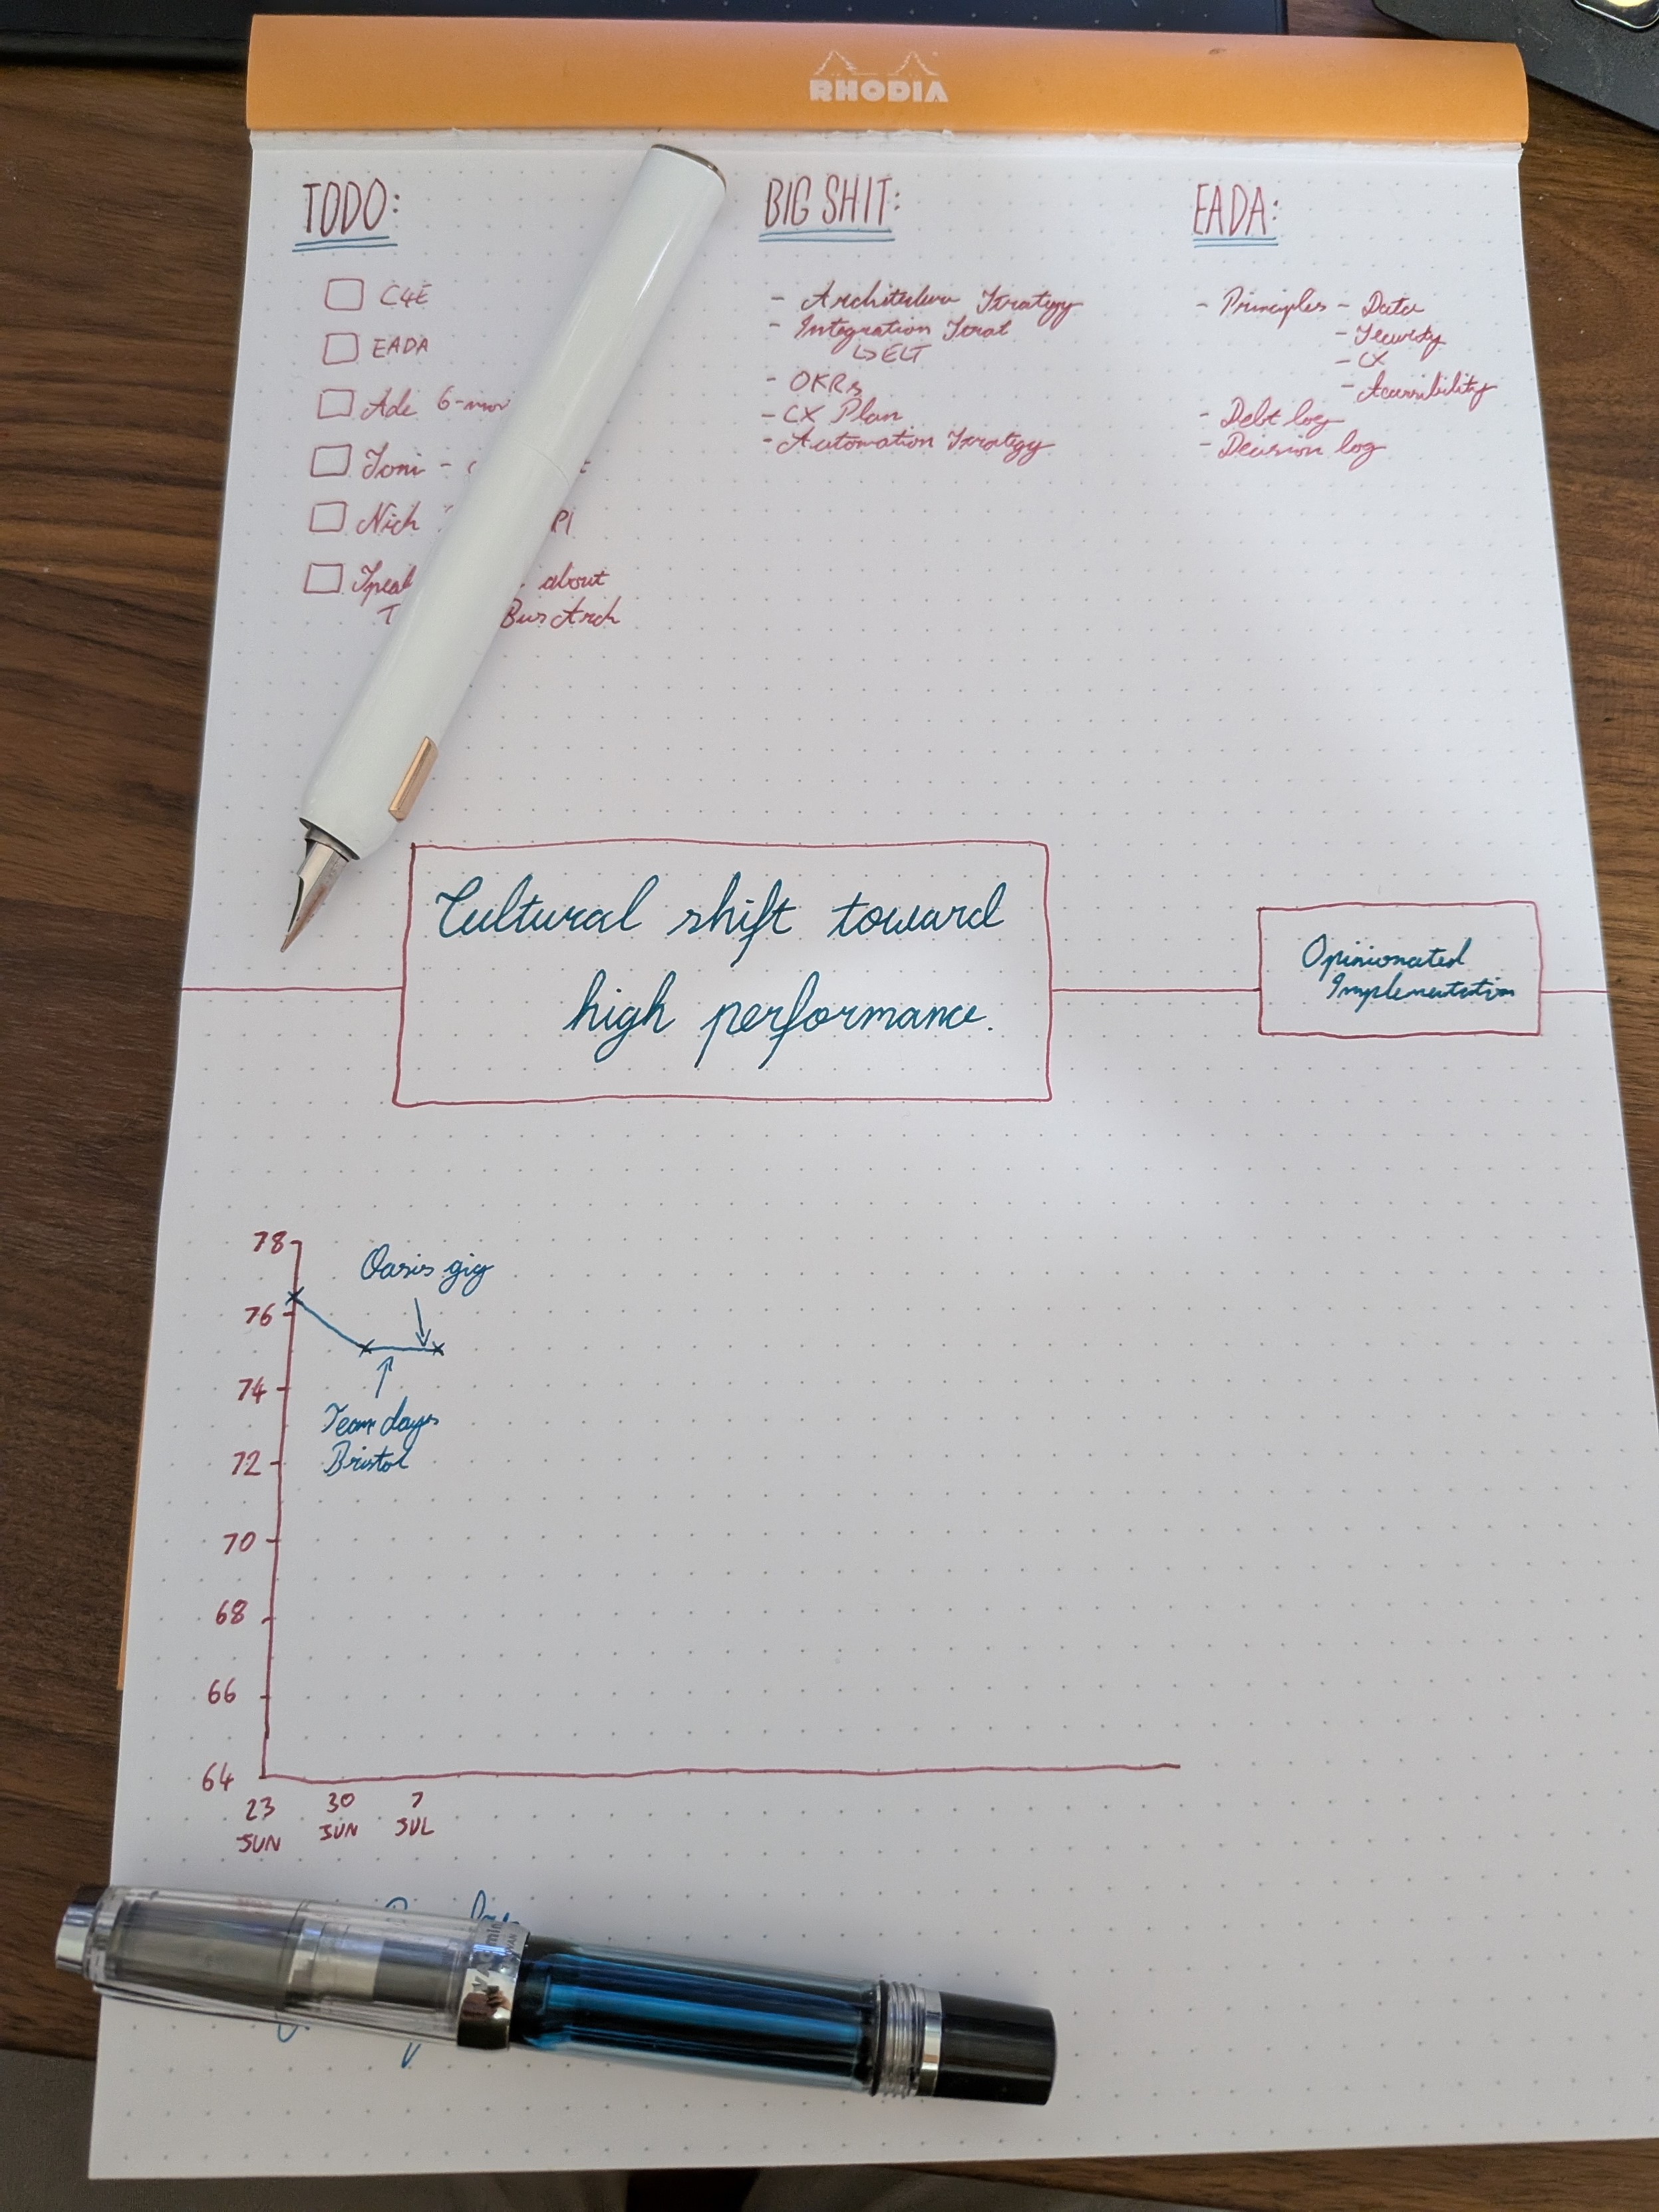 RHODIA
TODO:
C4E
EADA
Ade 6-
Toni -
Nick
about
Bus Arch
BIG SHIT:
- Architecture Strategy
- Integration Strat
↳ ELT
- OKRs
- CX Plan
- Automation Strategy
EADA:
- Principles - Data
- Security
- CX
- Accessibility
- Debt log
- Decision log
Cultural shift toward
high performance.
Opinionated
Implementation
78
76
74
72
70
68
66
64
Oasis gig
Team days
Bristol
23 30 7
JUN JUN JUL